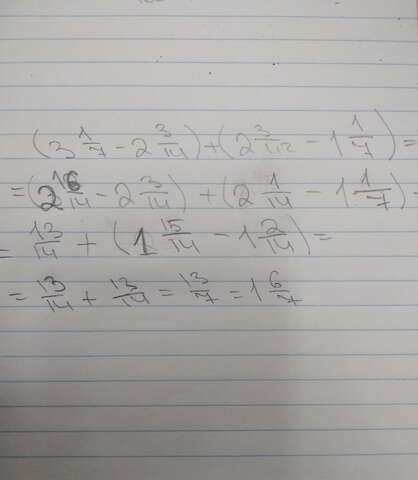 (3 1/7 - 2 3/14) + (2 3/42 - 1 1/7) =
= (2 16/14 - 2 3/14) + (2 1/14 - 1 1/7) -
= 13/14 + (1 15/14 - 1 2/14) =
= 13/14 + 13/14 = 13/7 = 1 6/7